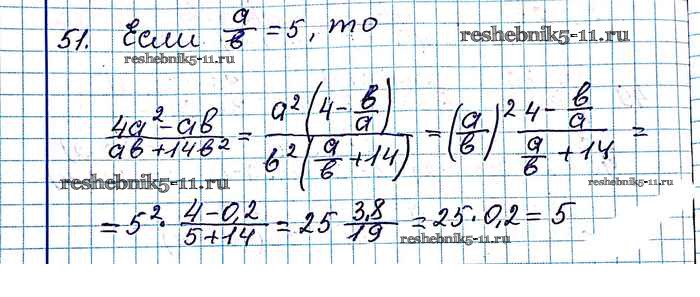 51. Если a/в = 5, то
reshebnik5-11.ru
reshebnik5-11.ru
(4a² - aв)/(aв + 14в²) = (a²(4 - в/a))/(в²(a/в + 14)) = (a/в)² (4 - в/a)/(a/в + 14) =
reshebnik5-11.ru
reshebnik5-11.ru
= 5² · (4 - 0,2)/(5 + 14) = 25 3,8/19 = 25 · 0,2 = 5
reshebnik5-11.ru